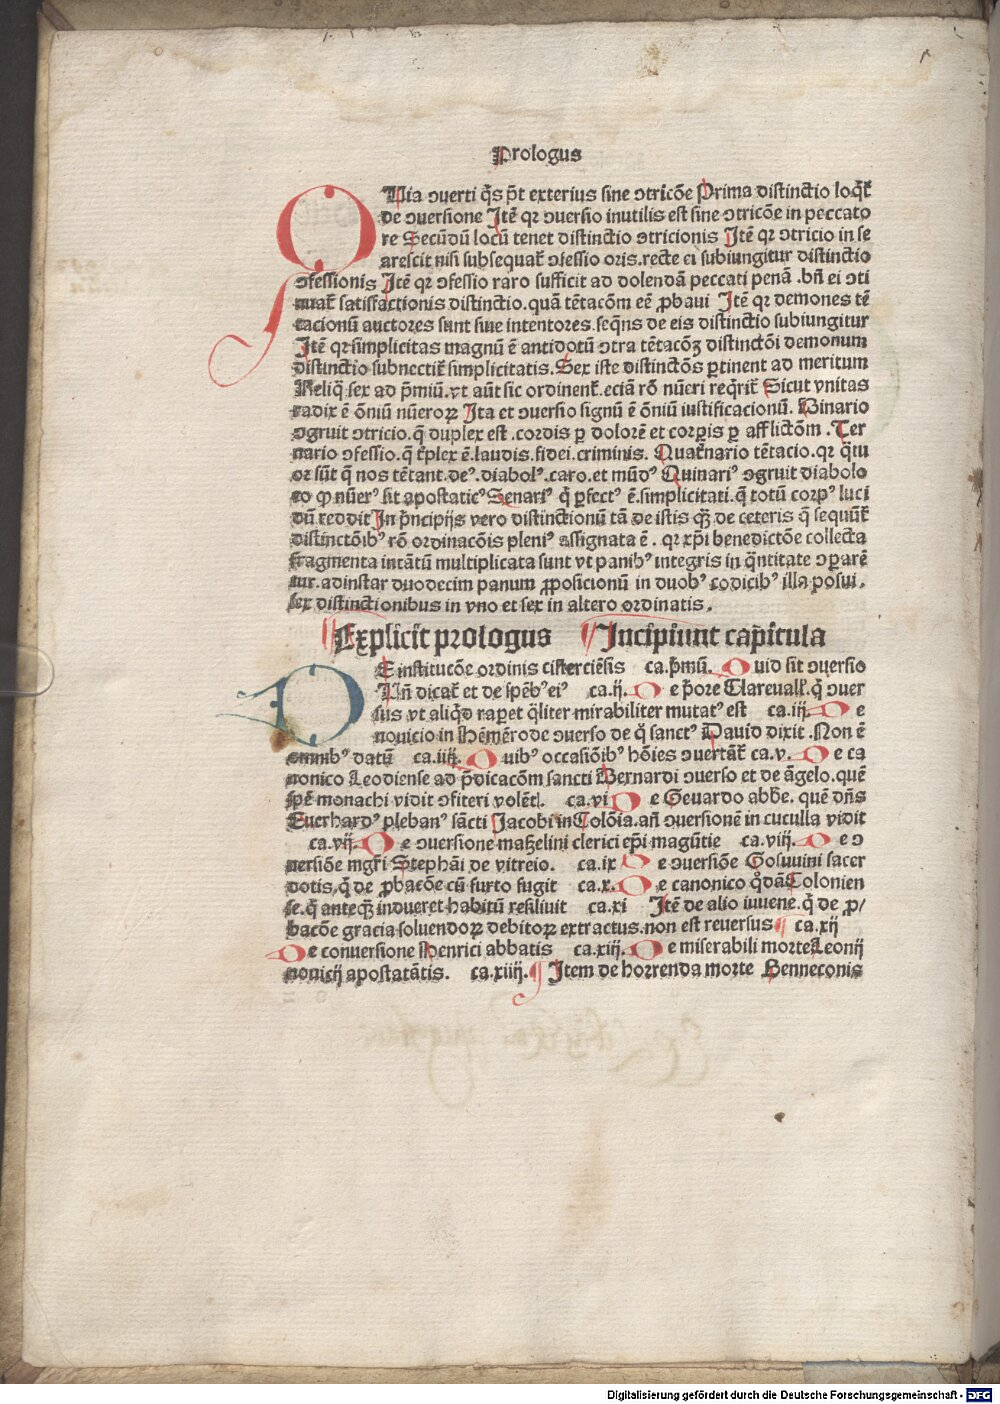 Prologus
QUia ↄuerti q̄s p̄t exterius sine ↄtricōe Prima distinctio loq̄t̄
de ↄuersione Itē qꝛ ↄuersio inutilis est sine ↄtricōe in peccato
re Secūdū locū tenet distinctio ↄtricionis Itē qꝛ ↄtricio in se
arescit nisi subsequat̄ ↄfessio oris.recte ei subiungitur distinctio
ↄfessionis Itē qꝛ ↄfessio raro sufficit ad dolendā peccati penā .bn̄ ei ↄti
nuat̄ satisfactionis distinctio.quā tētacōm eē ꝓbaui Itē qꝛ demones tē
tacionū auctores sunt siue intentores.seq̄ns de eis distinctio subiungitur
Itē qꝛ simplicitas magnū ē antidotū ↄtra tētacōꝫ distinctōi demonum
distinctio subnectit̄ simplicitatis.Sex iste distinctōs ꝑtinent ad meritum
Reliq̄ sex ad p̄miū.vt aūt sic ordinent̄.eciā rō nūeri req̄rit̄ Sicut vnitas
radix ē ōniū nūeroꝝ Ita et ↄuersio signū ē ōniū iustificacionū. Binario
ↄgruit ↄtricio.q̄ duplex est .cordis ꝑ dolorē et corꝑis ꝑ afflictōm .Ter
nario ↄfessio.q̄ t̄plex ē.laudis.fidei.criminis. Quat̄nario tētacio.qꝛ q̄tu
or sūt q̄ nos tētant.de⁹.diabol⁹.caro.et mūd⁹ Quinari⁹ ↄgruit diabolo
eo ꝙ nūer⁹ sit apostatic⁹ Senari⁹ q̄ ꝑfect⁹ ē.simplicitati.q̄ totū corp⁹ luci
dū reddit In p̄ncipijs vero distinctionū tā de istis qꝫ̄ de ceteris q̄ sequūt̄
distinctōib⁹ rō ordinacōis pleni⁹ assignata ē . qꝛ xp̄i benedictōe collecta
fragmenta intātū multiplicata sunt vt panib⁹ integris in q̄ntitate ↄparē
tur.adinstar duodecim panum ꝓposicionū in duob⁹ codicib⁹ illa posui.
sex distinctionibus in vno et sex in altero ordinatis.
Explicit prologus Incipiunt cap̄itula
DE institucōe ordinis cisterciēsis ca.p̄mū. Quid sit ↄuersio
Vn̄ dicat̄ et de sp̄eb⁹ ei⁹ ca.ij. De p̄ore Clareuall̄.q̄ ↄuer
sus vt aliq̄d raperet q̄liter mirabiliter mutat⁹ est ca.iij. De
nouicio in Hēmērode ↄuerso de q̊ sanct⁹ Dauid dixit .Non ē
omnib⁹ datū ca.iiij. Quib⁹ occasiōib⁹ hōies ↄuertāt̄ ca.v. De ca
nonico Leodiense ad p̄dicacōm sancti Bernardi ↄuerso et de āgelo.quē
sp̄ē monachi vidit ↄfiteri volētl. ca.vi De Geuardo abbe. quē dn̄s
Euerhard⁹ pleban⁹ sācti Jacobi in Colōia.an̄ ↄuersionē in cuculla vidit
ca.vij. De ↄuersione matzelini clerici ep̄i magūtie ca.viij. De ↄ
uersiōe mgr̄i Stephāi de vitreio. ca.ix De ↄuersiōe Gosuuini sacer
dotis,q̄ de ꝓbacōe cū furto fugit ca.x. De canonico q̊dā Colonien
se.q̄ anteqꝫ̄ indueret habitū resiliuit ca.xi Itē de alio iuuene.q̄ de ꝓ/
bacōe gracia soluendoꝝ debitoꝝ extractus.non est reuersus ca.xij
De conuersione Henrici abbatis ca.xiij. De miserabili morte Leonij
nouicij apostatātis. ca.xiiij. Item de horrenda morte Benneconis
Digitalisierung gefördert durch die Deutsche Forschungsgemeinschaft - DFG